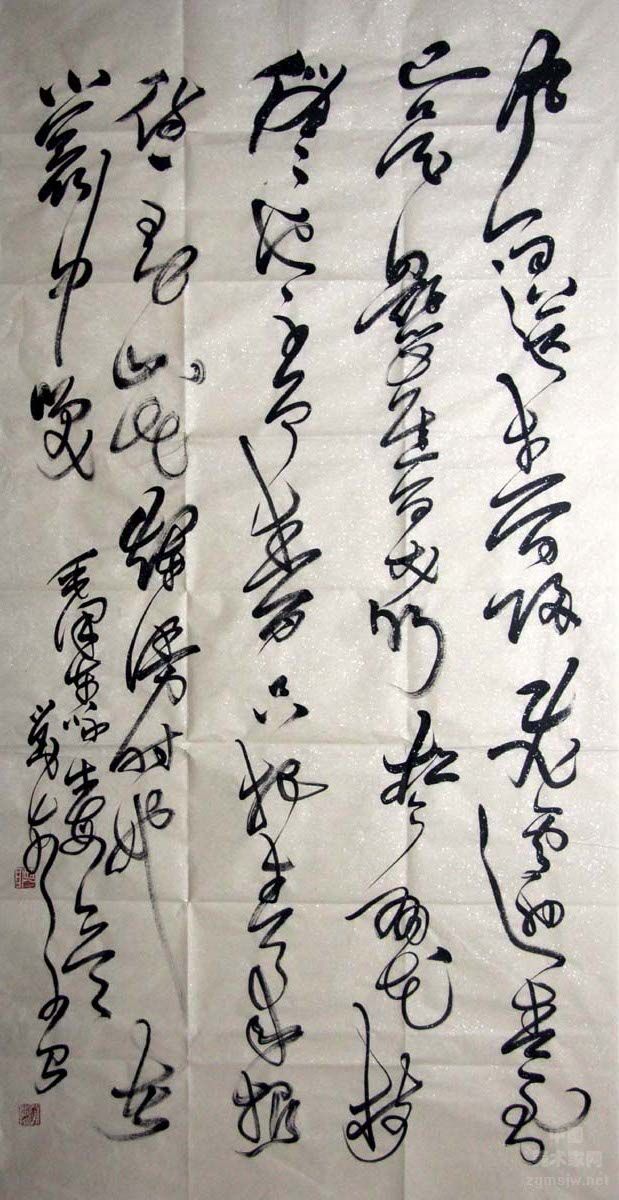 风雨送春归飞雪迎春到
已是悬崖百丈冰犹有花枝
俏俏也不争春只把春来报
待到山花烂漫时她在
丛中笑
毛泽东咏梅
中国美术家网
zgmsjw.net